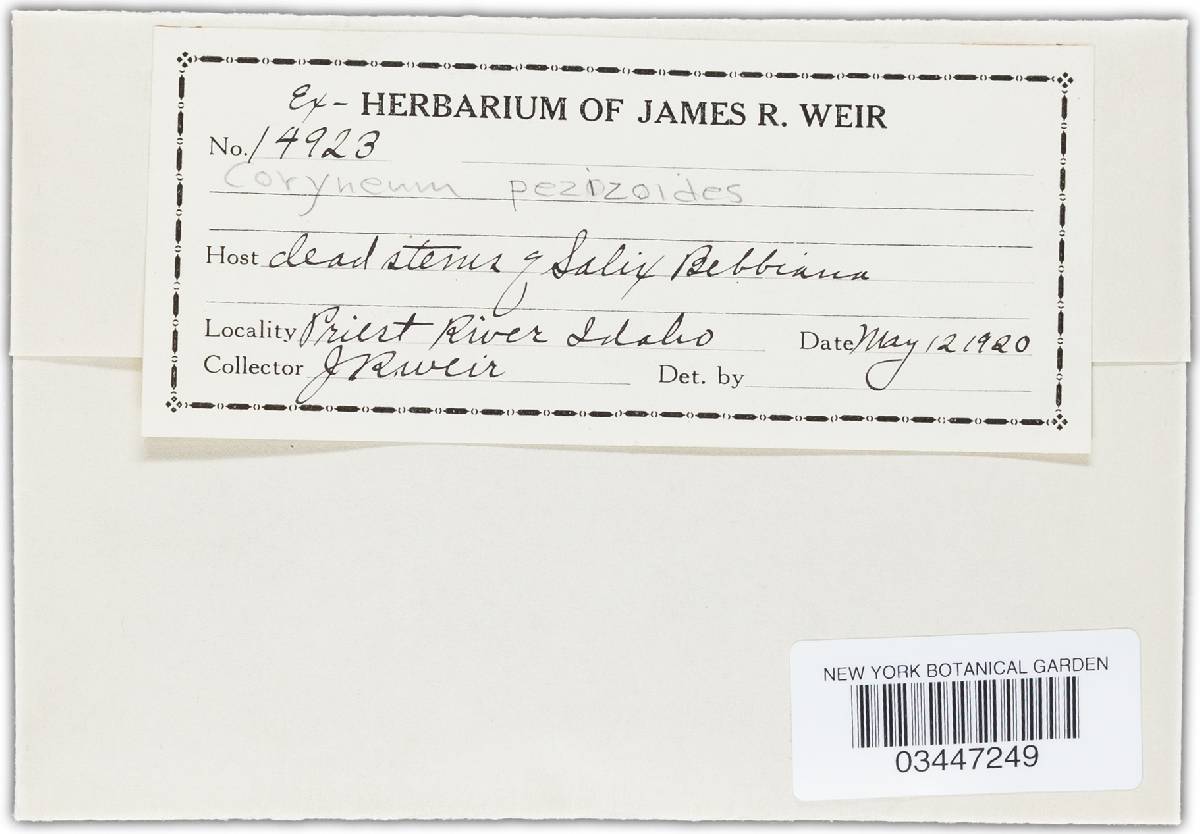 Ex- HERBARIUM OF JAMES R. WEIR
No. 14923
Coryneum pezizoides
Host dead stems of Salix Bebbiana
Locality Priest River Idaho Date May 12 1920
Collector J R Weir Det. by
NEW YORK BOTANICAL GARDEN
03447249